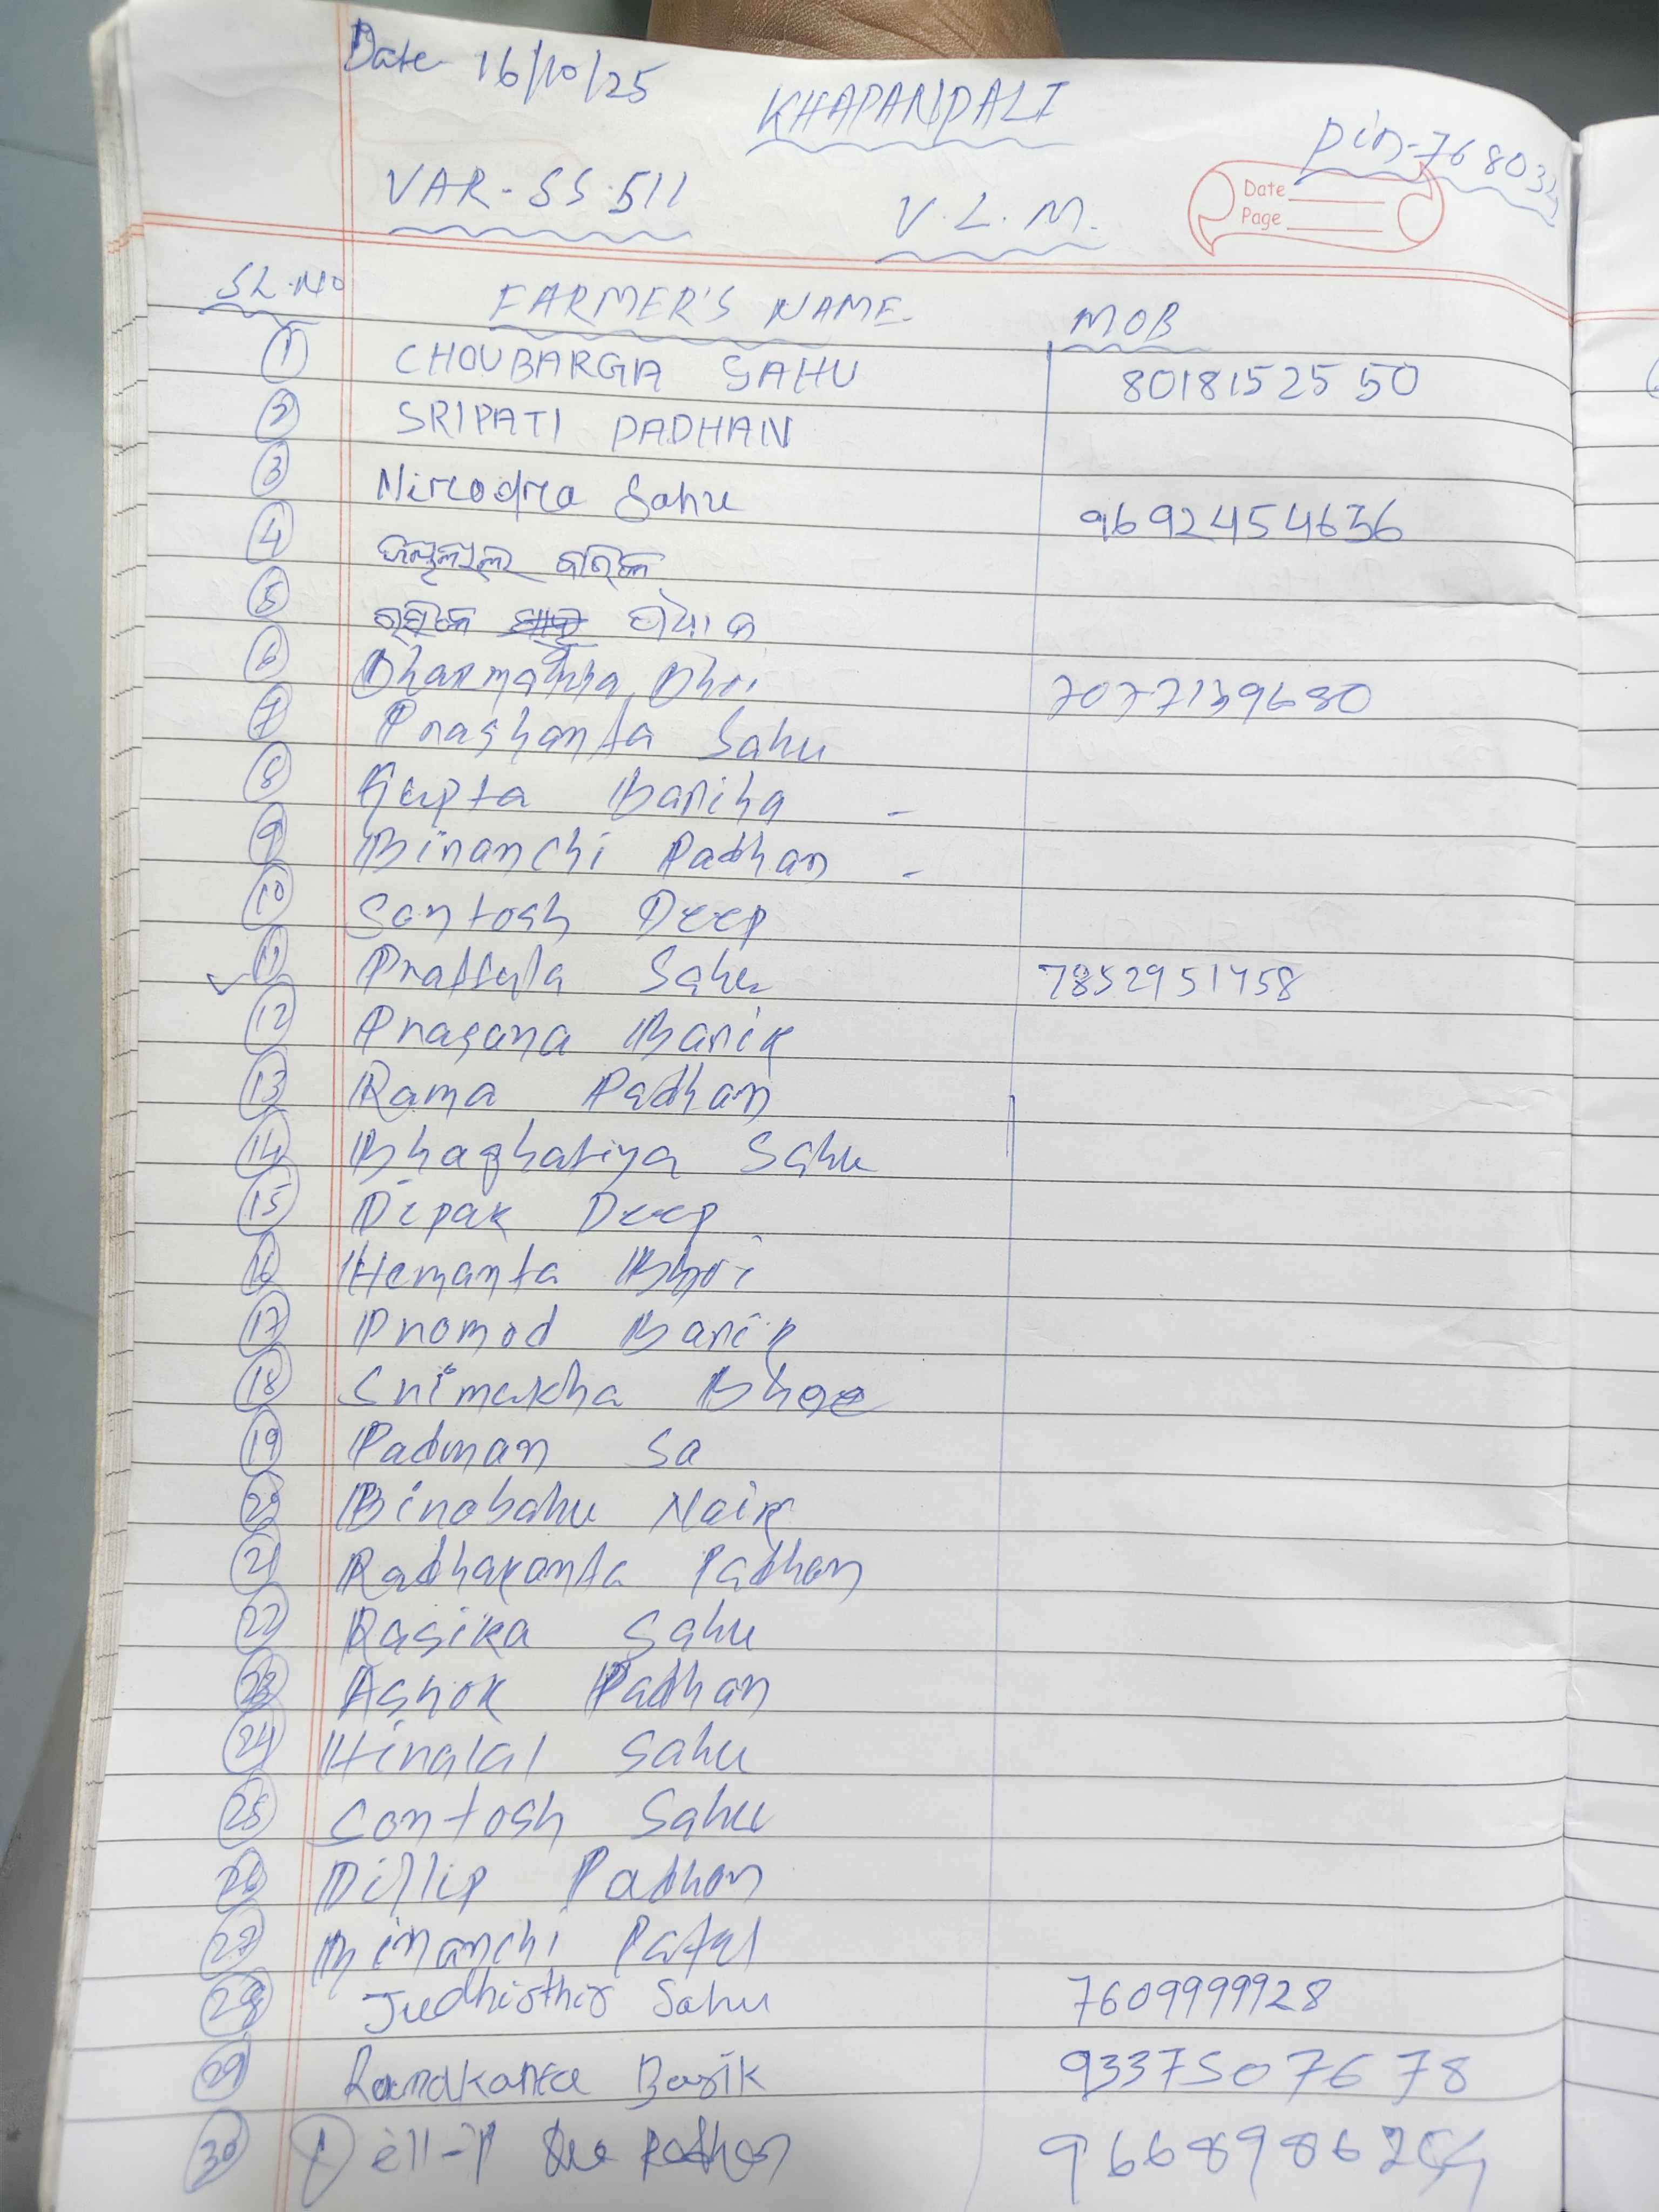 Date 16/10/25
KHAPANPALI
Pin-768032
VAR-SS-511
V.L.M.
Date
Page
SL.NO FARMER'S NAME. MOB
1 CHOUBARGIA SAHU 8018152550
2 SRIPATI PADHAN
3 Nirodra Sahu 9692454636
4 ବାରିକ
5 ପଧାନ
6 Dhoi 7077139680
7 Prashanta Sahu
8 Gupta Bariha -
9 Biranchi Padhan -
10 Santosh Deep
11 Praffula Sahu 7852951458
12 Prasana Barik
13 Rama Padhan
14 Bhaghatiya Sahu
15 Dipak Deep
16 Hemanta Bhoi
17 Promod Barik
18 Srimukha Bhoe
19 Padman Sa
20 Binobahu Naik
21 Radhakanta Padhan
22 Rasika Sahu
23 Ashok Padhan
24 Hiralal Sahu
25 Santosh Sahu
26 Dillip Padhan
27 Biranchi Patel
28 Judhisthir Sahu 7609999928
29 Ramakanta Barik 9337507678
30 Dill-p Padhan